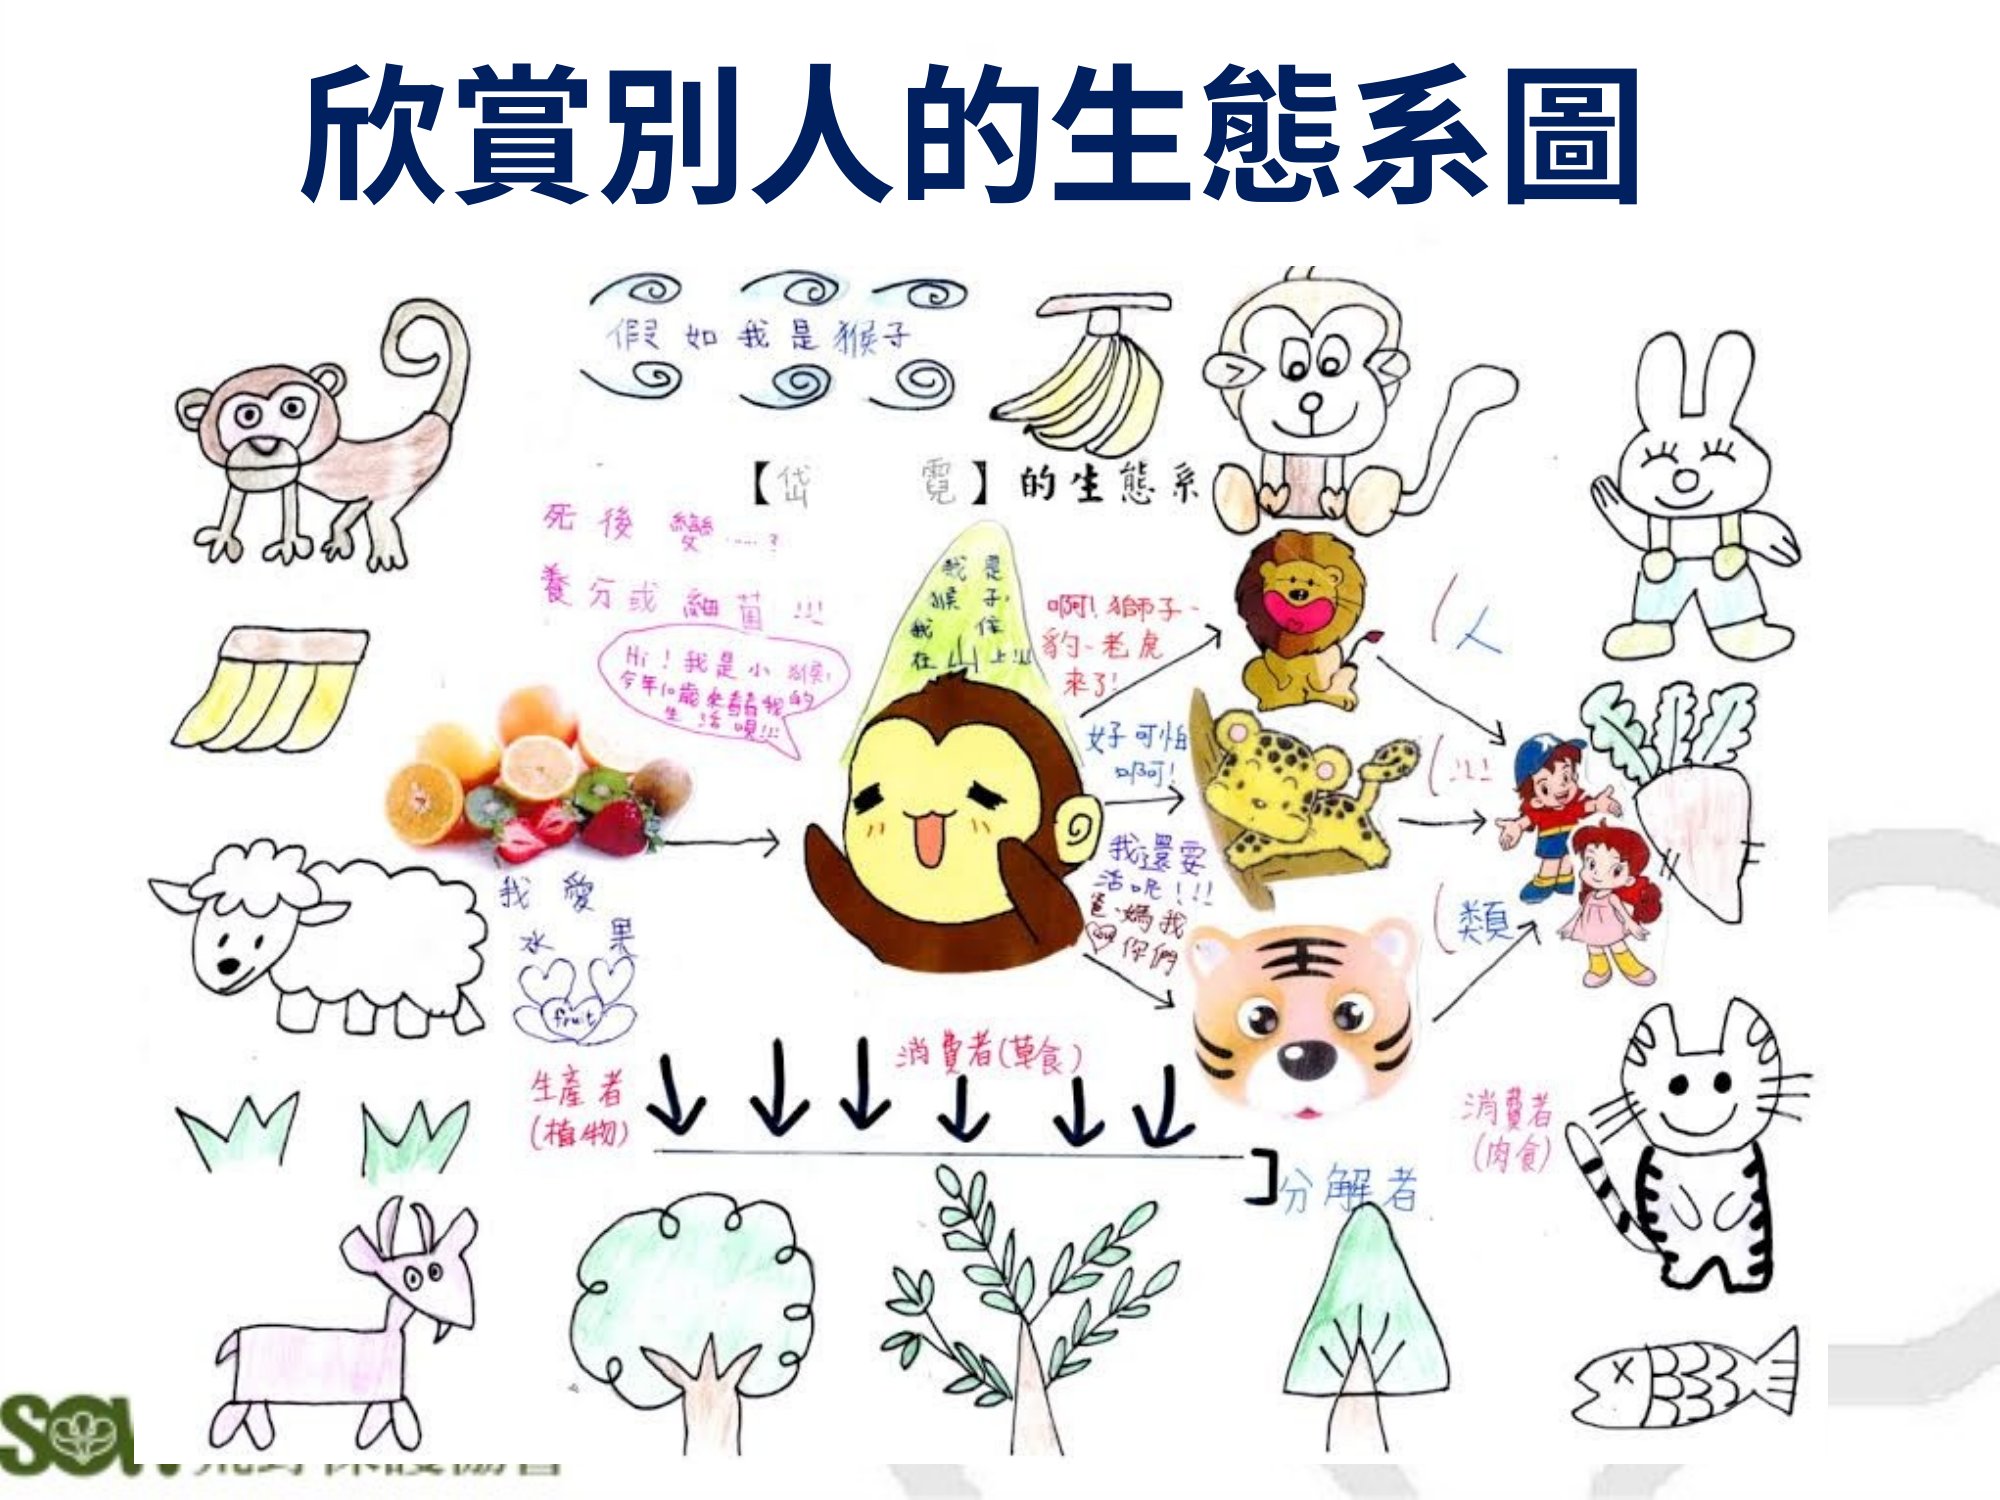 欣賞別人的生態系圖
假如我是猴子
【岱 霓】的生態系
死後變……?
養分或細菌!!!
Hi!我是小猴,
今年10歲來看看我的
生活唄!!!
我是
猴子,
我住
在山上!!!
啊!獅子、
豹、老虎
來了!
好可怕
啊!
我還要
活呢!!!
爸、媽我
你們
(人
(!!!
(類
我愛
水果
fruit
生產者
(植物)
消費者(草食)
消費者
(肉食)
]分解者
SOW